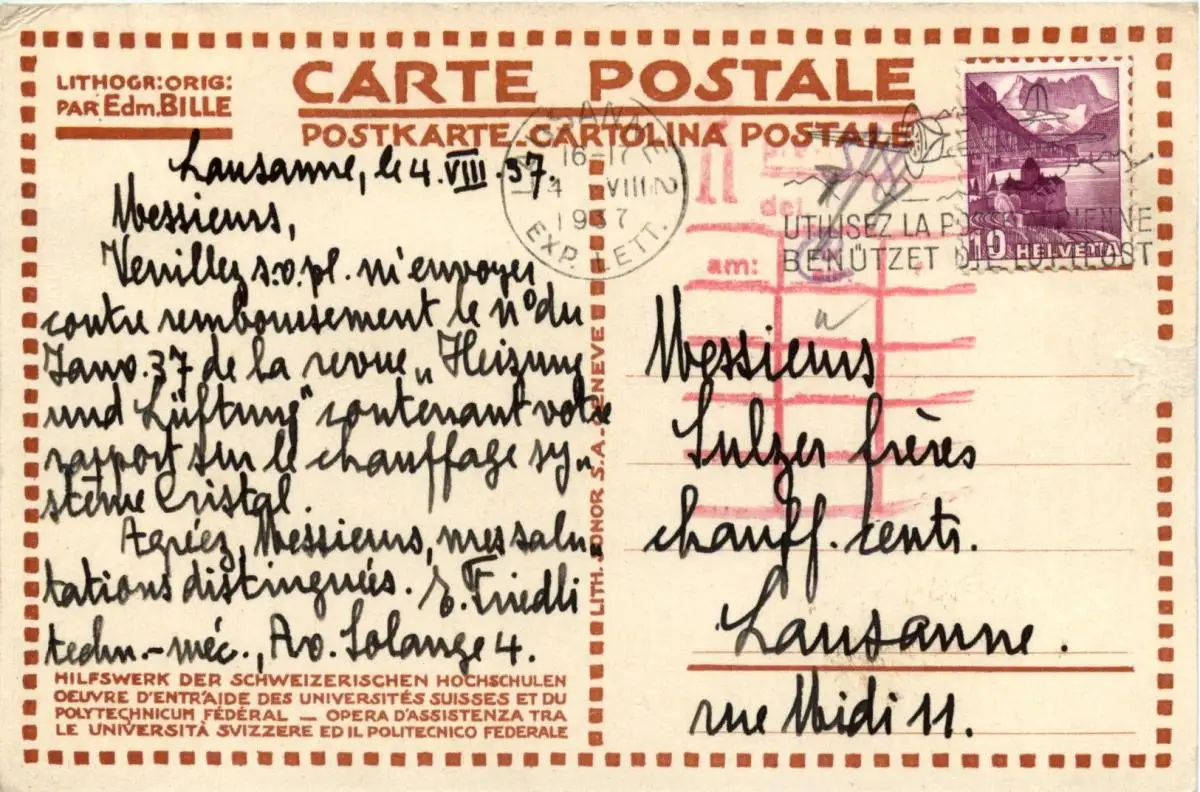 LITHOGR: ORIG:
PAR Edm. BILLE
CARTE POSTALE
POSTKARTE-CARTOLINA POSTALE
Lausanne, le 4. VIII. 37.
Messieurs,
Veuillez s.v.pl. m'envoyer
contre remboursement le nº du
Janv. 37 de la revue „Heizung
und Lüftung" contenant votre
rapport sur le chauffage sy„
stème Cristal.
Agréez, Messieurs, mes salu„
tations distinguées. E. Friedli
techn.-méc., Av. Solange 4.
HILFSWERK DER SCHWEIZERISCHEN HOCHSCHULEN
OEUVRE D'ENTR'AIDE DES UNIVERSITÉS SUISSES ET DU
POLYTECHNICUM FÉDÉRAL — OPERA D'ASSISTENZA TRA
LE UNIVERSITÀ SVIZZERE ED IL POLITECNICO FEDERALE
LITH. SONOR S.A.-GENÈVE
LAUSANNE
16-17
4 VIII
1937
EXP. LETT.
UTILISEZ LA POSTE AÉRIENNE
BENÜTZET DIE LUFTPOST
10 HELVETIA
11
del
am:
Messieurs
Sulzer frères
chauff. centr.
Lausanne.
rue Midi 11.